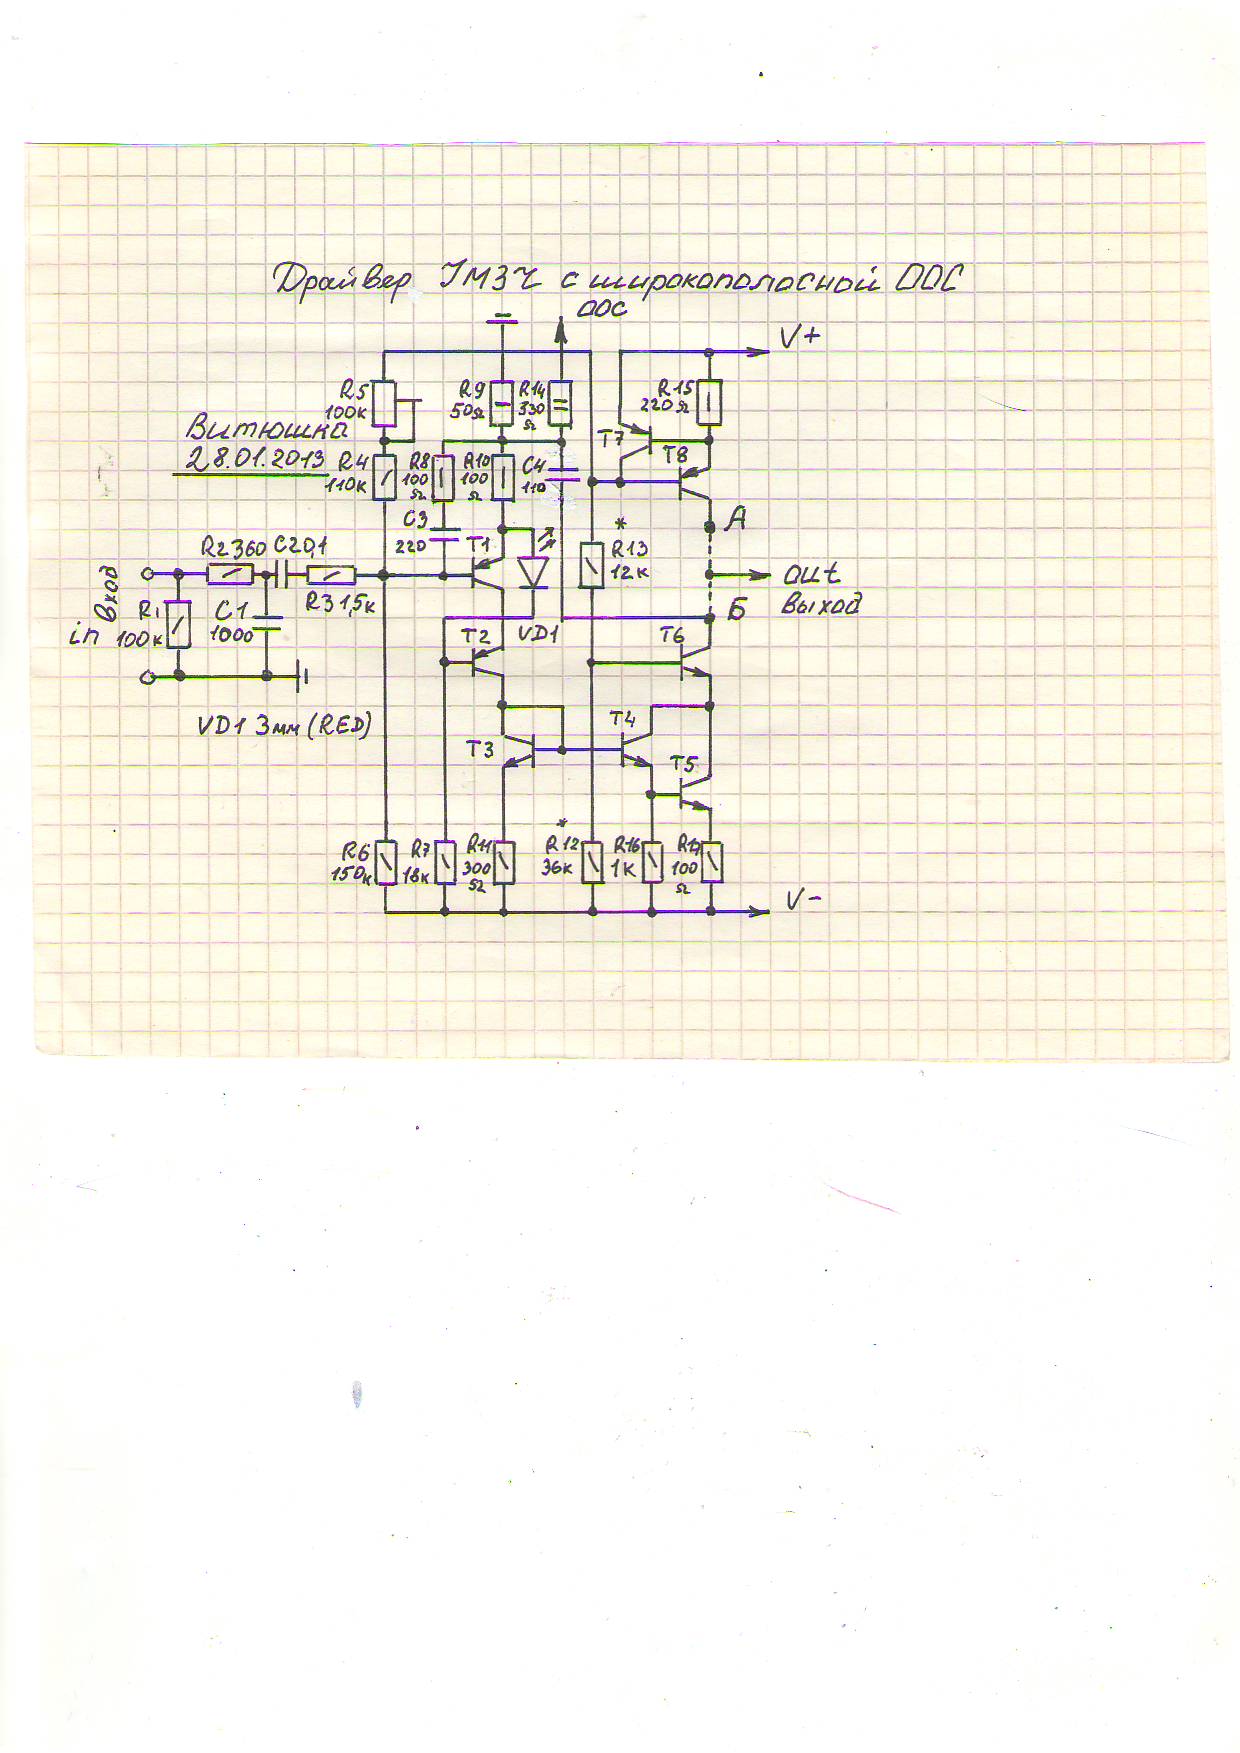 Драйвер УМЗЧ с широкополосной ООС
ООС
V+
R5
100к
R9
50Ω
R14
330
Ω
R15
220Ω
Витюшка
28.01.2013
T7
T8
R4
110к
R8
100
Ω
R10
100
Ω
C4
110
C3
220
T1
*
R13
12к
А
out
Выход
Б
R2 360
C2 0,1
R3 1,5к
Вход
in
R1
100к
C1
1000
T2
VD1
T6
VD1 3мм (RED)
T3
T4
T5
R6
150к
R7
18к
R11
300
Ω
*
R12
36к
R16
1к
R17
100
Ω
V-